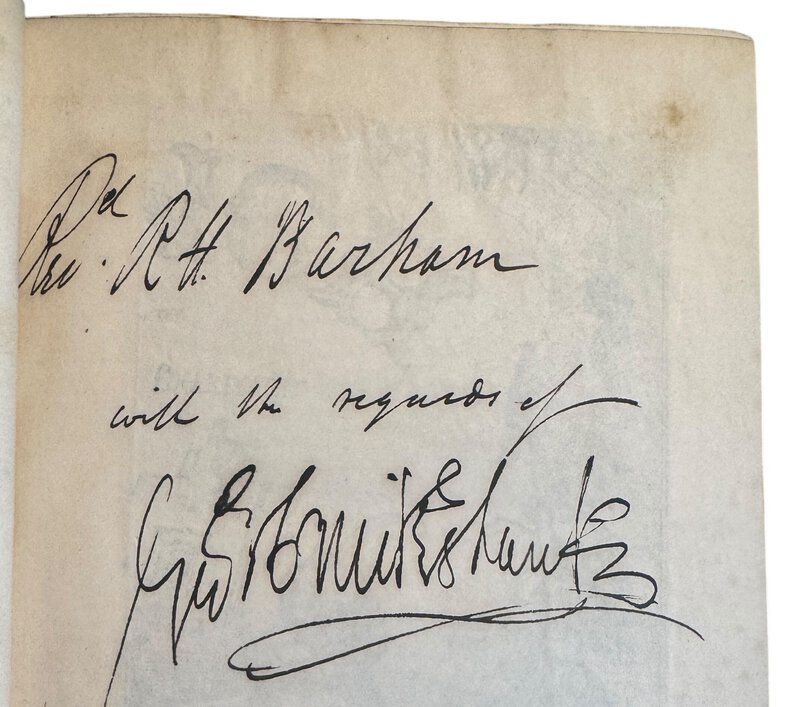 Revd. R H. Barham
with the regards of
Geo Cruikshank